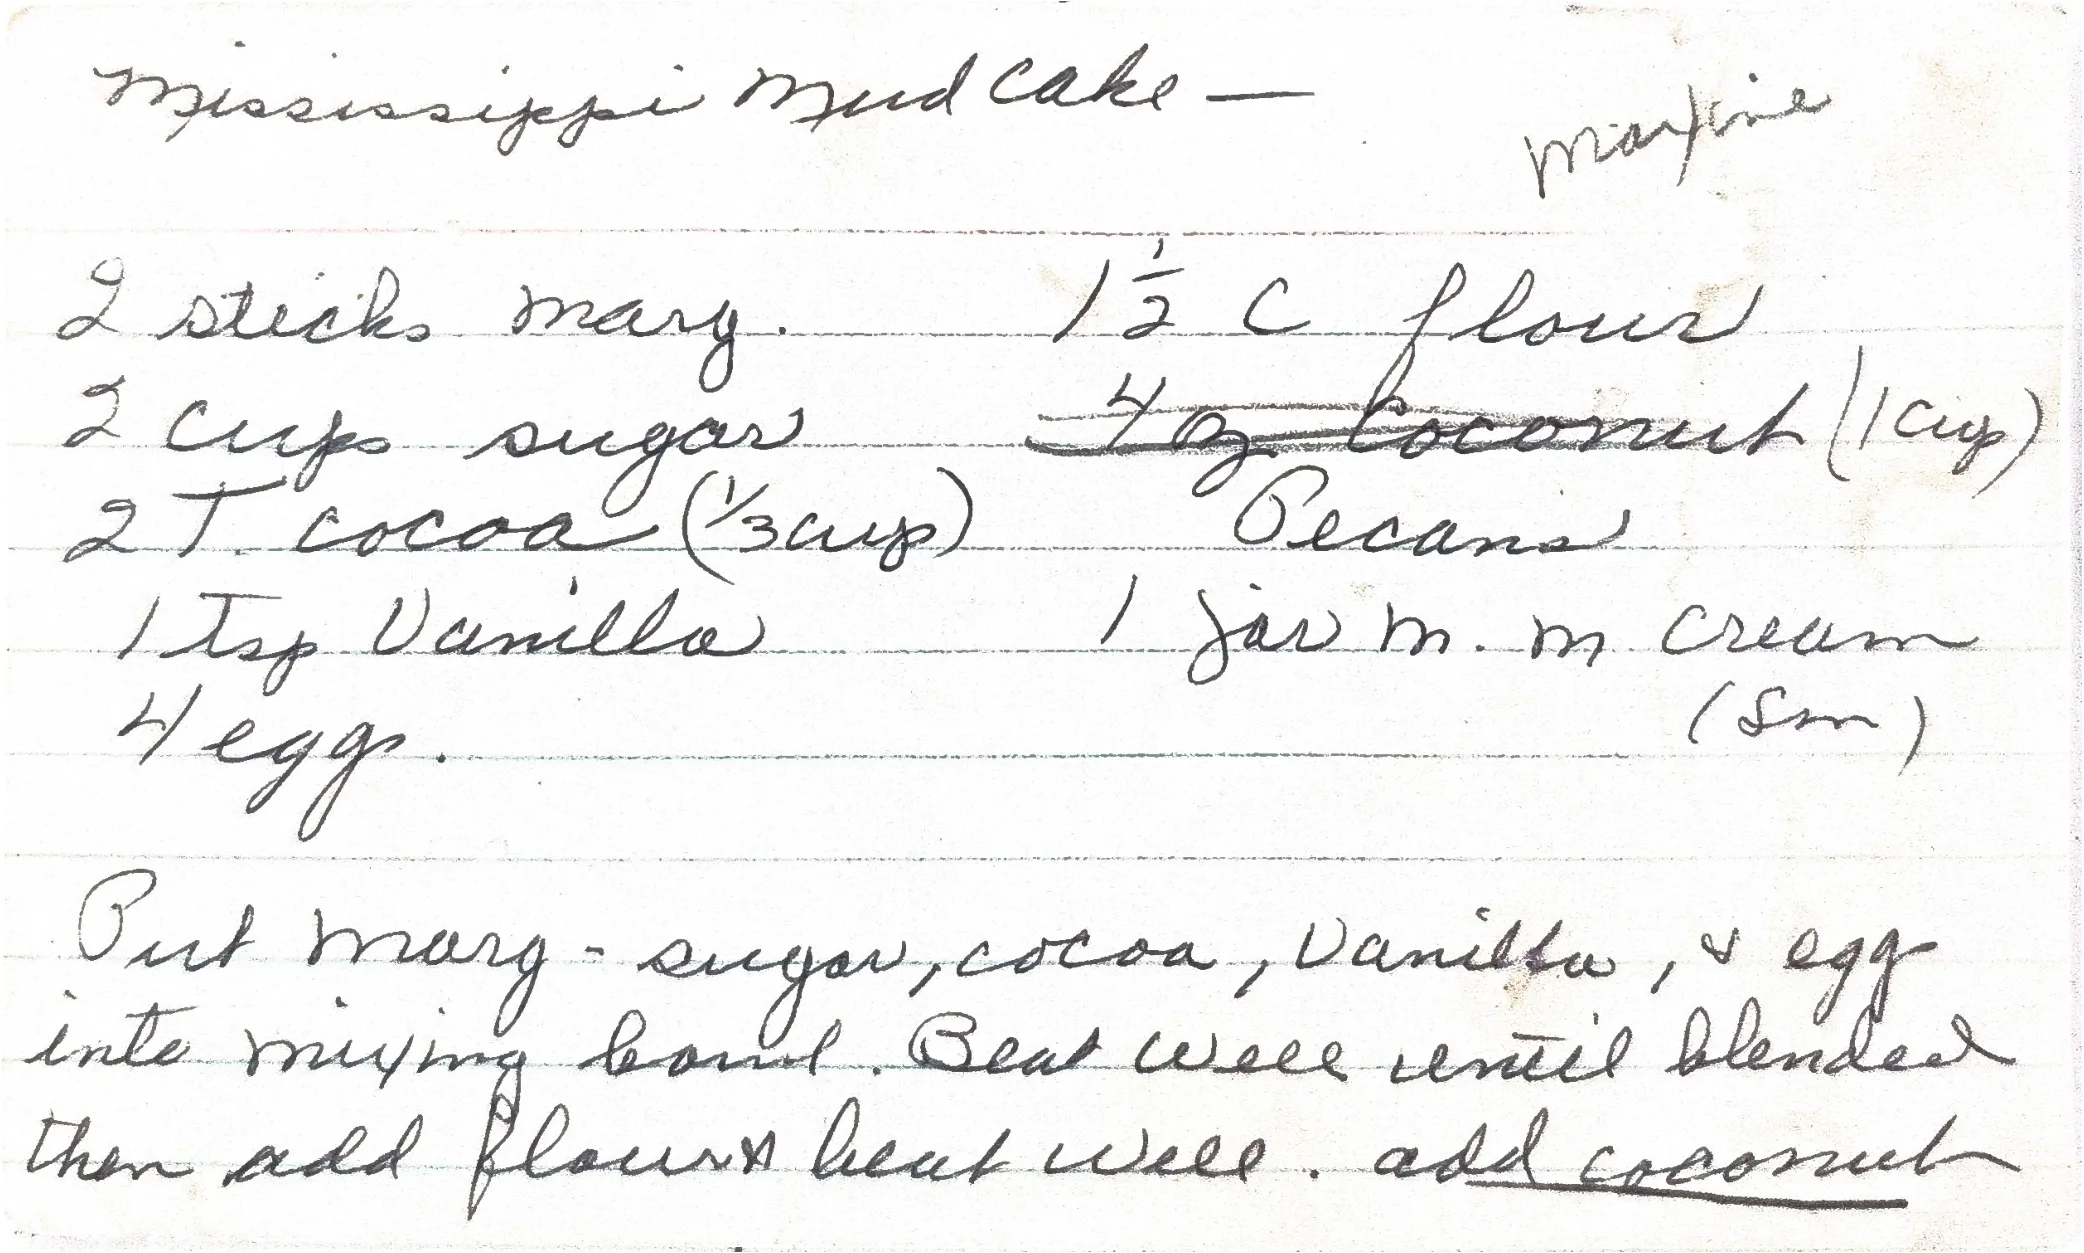 Mississippi Mud Cake —
Maxine
2 sticks marg. 1 1/2 C flour
2 cups sugar 4 oz Coconut (1 cup)
2 T. cocoa (1/3 cup) Pecans
1 Tsp Vanilla 1 jar m. m cream
4 eggs. (Sm)
Put marg - sugar, cocoa, Vanilla, & egg
into mixing bowl. Beat well until blended
then add flour & beat well. add coconut